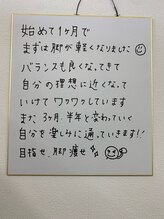 始めて1ヶ月で
まずは脚が軽くなりました
バランスも良くなってきて
自分の理想に近くなって
いけてワクワクしています
また3ヶ月、半年と変わっていく
自分を楽しみに通っていきます!!
目指せ、脚痩せ